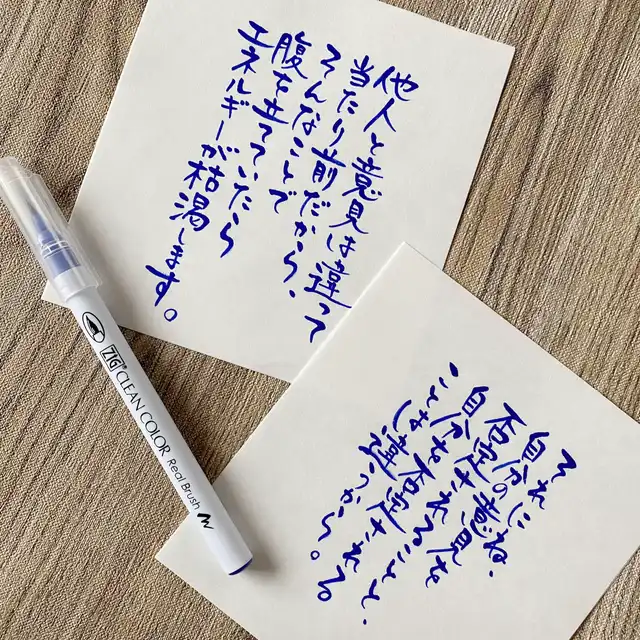 他人と意見は違って
当たり前だから、
そんなことで
腹を立てていたら
エネルギーが枯渇します。
それにね、
自分の意見を
否定されることと、
自分を否定される
ことは違うから。
ZIG CLEAN COLOR Real Brush